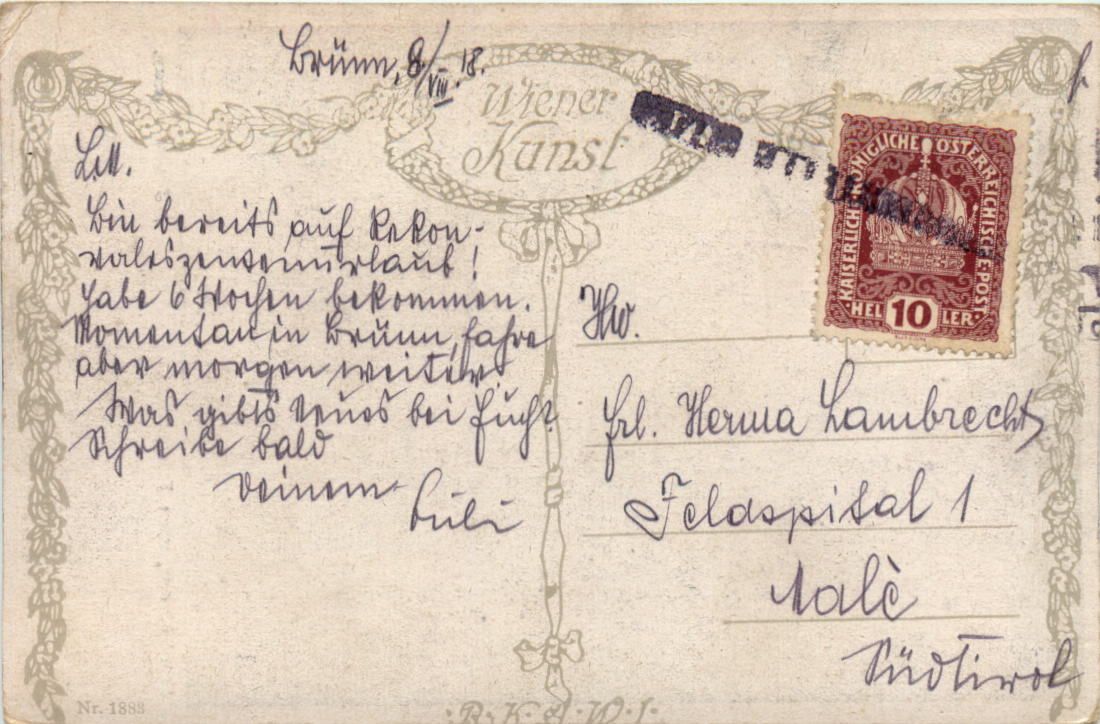 Brünn, 8/VIII. 18.
Wiener
Kunst
KAISERLICHE KÖNIGLICHE ÖSTERREICHISCHE POST
HELLER
10
Bin bereits auf Rekon-
valeszentenurlaub!
Habe 6 Wochen bekommen.
Momentan in Brünn, fahre
aber morgen weiter.
Was gibts Neues bei Euch?
Schreibe bald
Deinem
Hw.
Frl. Herma Lambrecht,
Feldspital 1
Malè
Südtirol
Nr. 1883
B.K.W.I.